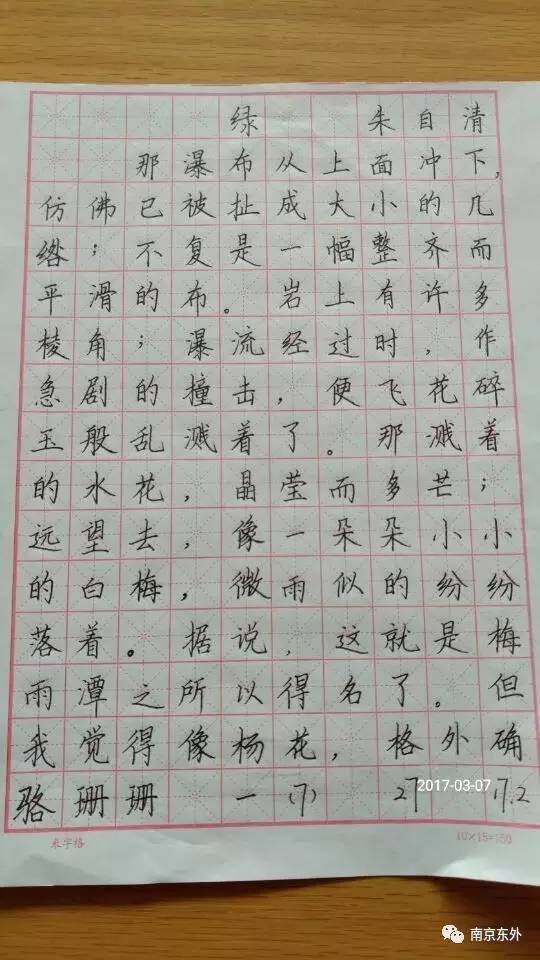 绿 朱自清
那瀑布从上面冲下,
仿佛已被扯成大小的几
绺；不复是一幅整齐而
平滑的布。岩上有许多
棱角；瀑流经过时，作
急剧的撞击，便飞花碎
玉般乱溅着了。那溅着
的水花，晶莹而多芒；
远望去，像一朵朵小小
的白梅，微雨似的纷纷
落着。据说，这就是梅
雨潭之所以得名了。但
我觉得像杨花，格外确
骆珊珊 一(7) 27 17.2
2017-03-07
米字格 10×15=150
南京东外